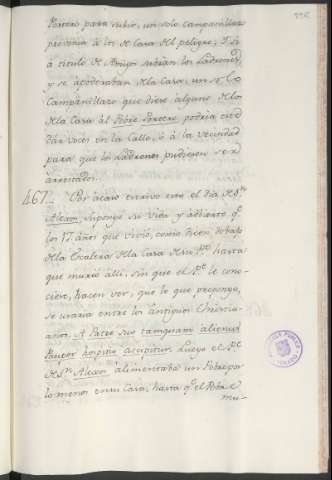 Portero para subir, un solo campanillazo
prevenia à los de Casa del peligro; y si
à titulo de Amigo subian los Ladrones,
y se apoderaban de la Casa, un solo
Campanillazo que diese alguno de los
de la Casa al Pobre Portero podria este
dar voces en la Calle, ò à la vecindad
para que los Ladrones pudiesen ser
arrestados.
467.. Por acaso escrivo esto el dia de Sn.
Alexos, supongo su Vida y advierto q.e
los 17 años que vivió, como dicen debajo
de la Escalera de la Casa de su P.e hasta
que murió alli, sin que el P.e le cono-
ciese, hacen ver, que lo que propongo,
se usaria entre los Antiguos Christia-
nos. A Patre suo tamquam alienus
Pauper hospitio accipitur. Luego el P.e
de Sn. Alexos alimentaba un Pobre por
lo menos en su Casa, hasta q.e el Pobre
mu-